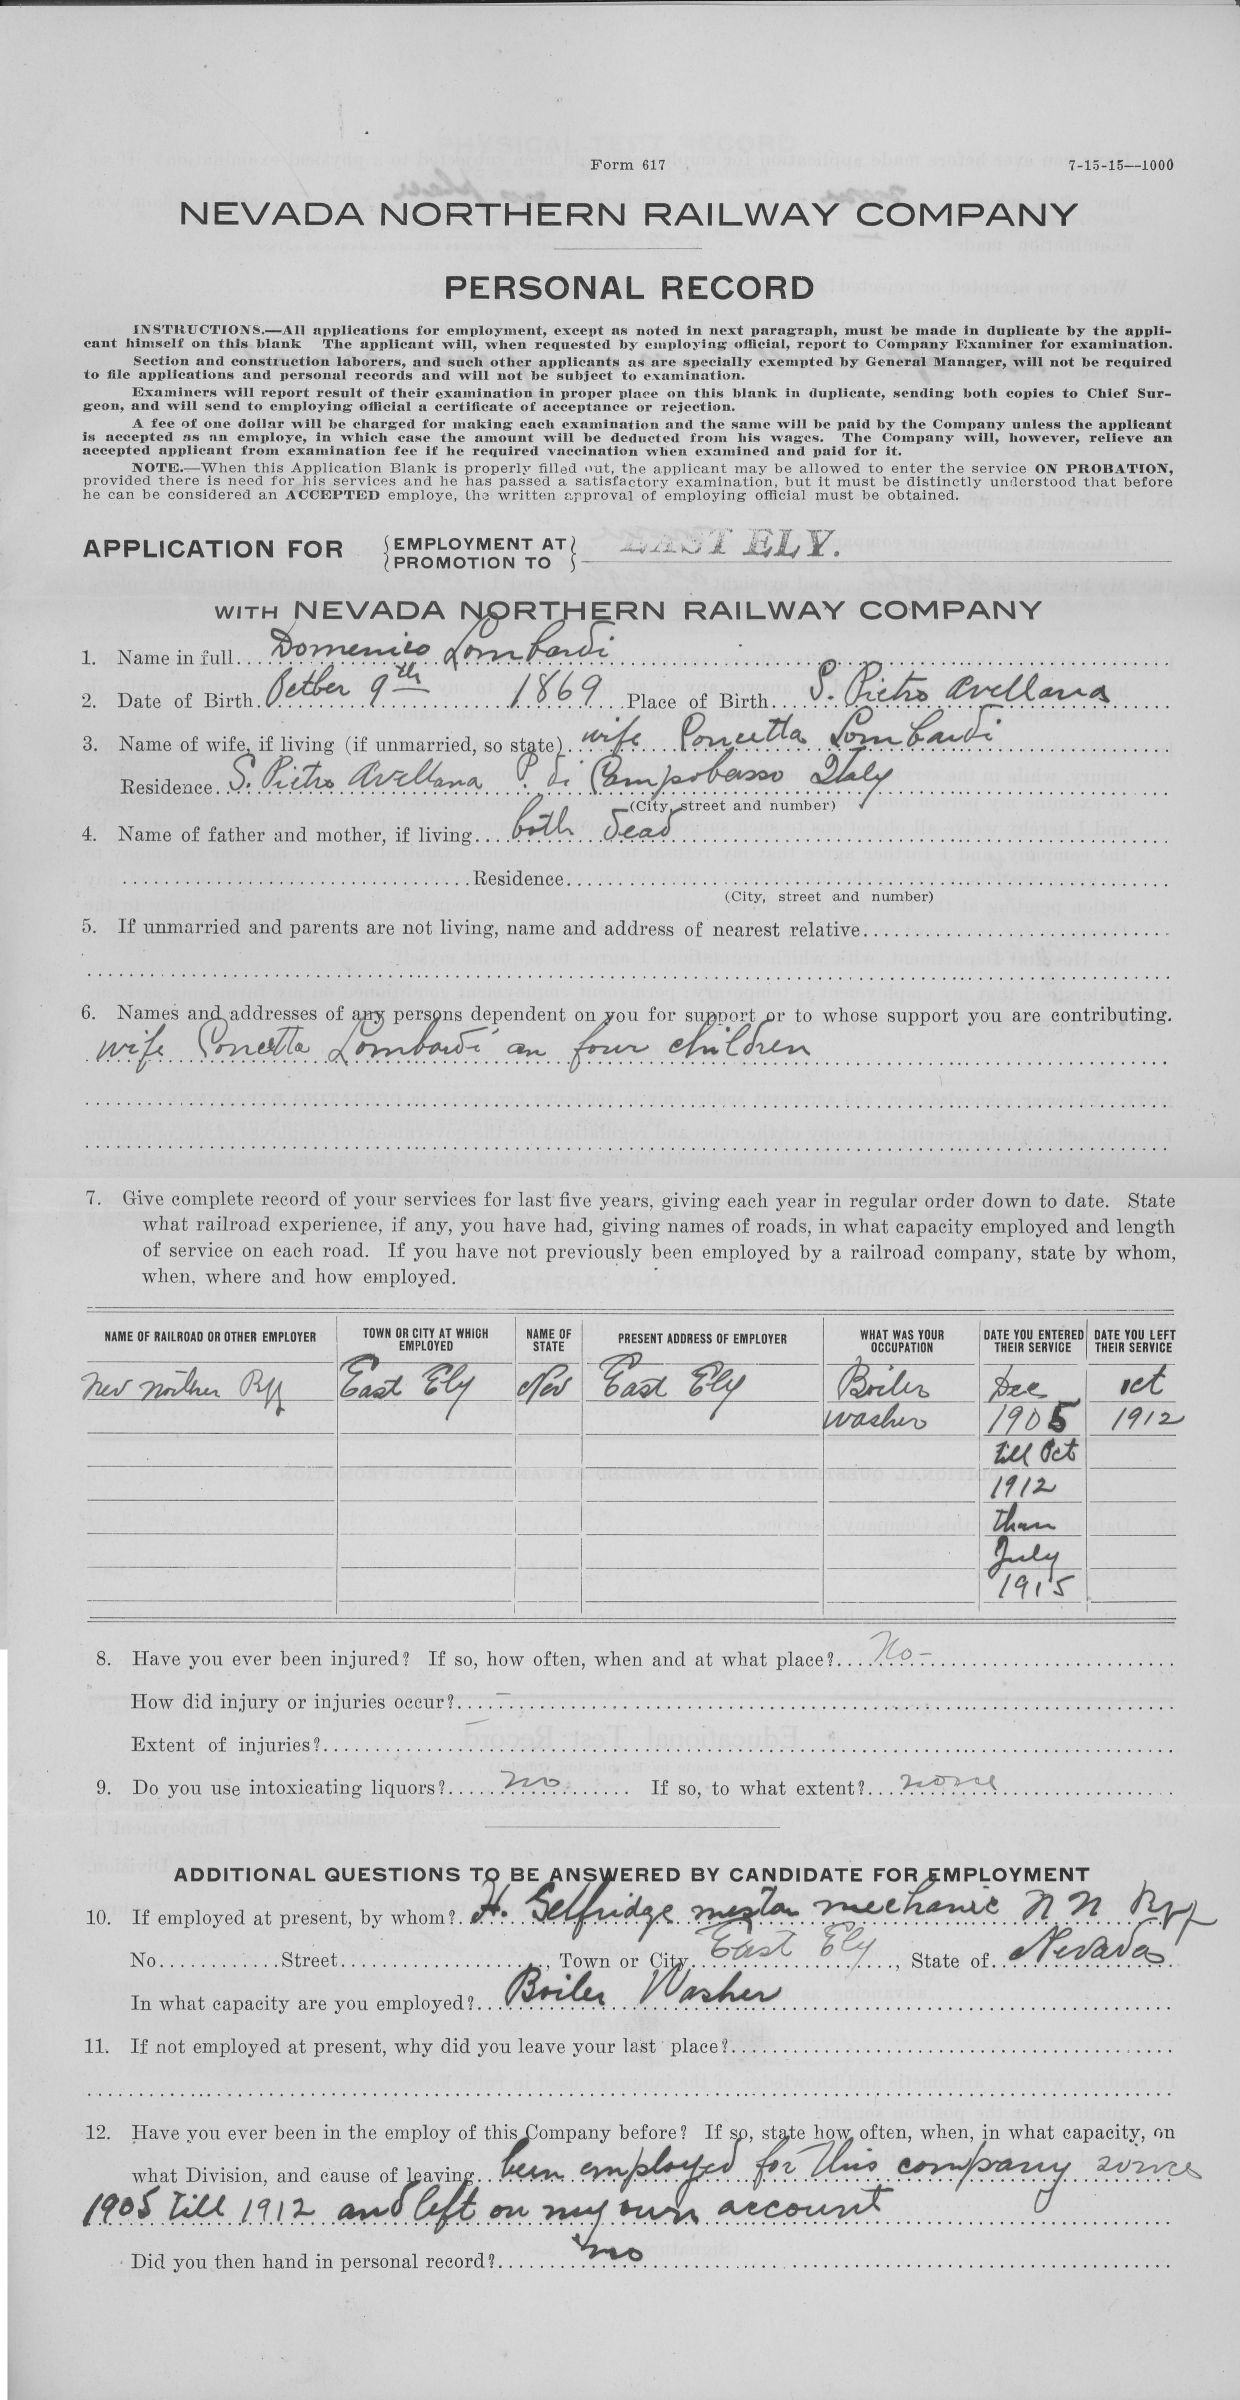 Form 617 7-15-15—1000
NEVADA NORTHERN RAILWAY COMPANY
PERSONAL RECORD
INSTRUCTIONS.—All applications for employment, except as noted in next paragraph, must be made in duplicate by the appli-
cant himself on this blank The applicant will, when requested by employing official, report to Company Examiner for examination.
Section and construction laborers, and such other applicants as are specially exempted by General Manager, will not be required
to file applications and personal records and will not be subject to examination.
Examiners will report result of their examination in proper place on this blank in duplicate, sending both copies to Chief Sur-
geon, and will send to employing official a certificate of acceptance or rejection.
A fee of one dollar will be charged for making each examination and the same will be paid by the Company unless the applicant
is accepted as an employe, in which case the amount will be deducted from his wages. The Company will, however, relieve an
accepted applicant from examination fee if he required vaccination when examined and paid for it.
NOTE.—When this Application Blank is properly filled out, the applicant may be allowed to enter the service ON PROBATION,
provided there is need for his services and he has passed a satisfactory examination, but it must be distinctly understood that before
he can be considered an ACCEPTED employe, the written approval of employing official must be obtained.
APPLICATION FOR {EMPLOYMENT AT} EAST ELY.
{PROMOTION TO }
WITH NEVADA NORTHERN RAILWAY COMPANY
1. Name in full. Domenico Lombardi
2. Date of Birth. Octber 9th 1869 Place of Birth. S. Pietro Avellana
3. Name of wife, if living (if unmarried, so state). wife Concetta Lombardi
Residence. S. Pietro Avellana P. di Campobasso Italy
(City, street and number)
4. Name of father and mother, if living. both dead
Residence.
(City, street and number)
5. If unmarried and parents are not living, name and address of nearest relative.
6. Names and addresses of any persons dependent on you for support or to whose support you are contributing.
wife Concetta Lombardi an four children
7. Give complete record of your services for last five years, giving each year in regular order down to date. State
what railroad experience, if any, you have had, giving names of roads, in what capacity employed and length
of service on each road. If you have not previously been employed by a railroad company, state by whom,
when, where and how employed.
NAME OF RAILROAD OR OTHER EMPLOYER TOWN OR CITY AT WHICH EMPLOYED NAME OF STATE PRESENT ADDRESS OF EMPLOYER WHAT WAS YOUR OCCUPATION DATE YOU ENTERED THEIR SERVICE DATE YOU LEFT THEIR SERVICE
Nev Northern Ry East Ely Nev East Ely Boiler Dec oct
washer 1905 1912
till Oct
1912
than
July
1915
8. Have you ever been injured? If so, how often, when and at what place? No-
How did injury or injuries occur? –
Extent of injuries? –
9. Do you use intoxicating liquors? no If so, to what extent? none
ADDITIONAL QUESTIONS TO BE ANSWERED BY CANDIDATE FOR EMPLOYMENT
10. If employed at present, by whom? H. Selfridge master mechanic N N Ry
No. Street. , Town or City. East Ely, State of. Nevada
In what capacity are you employed? Boiler Washer
11. If not employed at present, why did you leave your last place?
12. Have you ever been in the employ of this Company before? If so, state how often, when, in what capacity, on
what Division, and cause of leaving. been employed for this company since
1905 till 1912 and left on my own account
Did you then hand in personal record? no